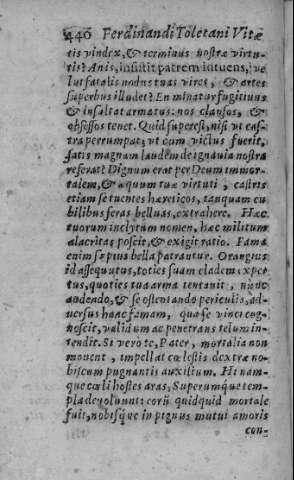 440 Ferdinandi Toletani Vitæ
tis vindex, & terminus nostræ virtu-
tis? Anis, insistit patrem intuens, ve
lut fatalis nodus tuas vires, & artes
superbus illudet? En minatur fugitiuus
& insaltat armatus: nos clausos, &
obsessos tenet. Quid superest, nisi vt cas-
tra perrumpat, vt cum victus fuerit,
satis magnam laudem de ignauia nostra
referat? Dignum erat per Deum immor-
talem, & æquum tuæ virtuti, castris
etiam se tuentes hæreticos, tanquam cu-
bilibus feras belluas, extrahere. Hæc
tuorum inclytum nomen, hæc militum
alacritas poscit, & exigit ratio. Fama
enim sæpius bella patrantur. Orangius
id assequutus, toties suam cladem expec-
tus, quoties tua arma tentauit, nunc
audendo, & se ostentando periculis, ad-
uersus hanc famam, qua se vinci cog-
noscit, validum ac penetrans telum in-
tendit. Si vero te, Pater, mortalia non
mouent, impellat cœlestis dextræ no-
biscum pugnantis auxilium. Hi nam-
que cœli hostes aras, Superumque tem-
pla deuolunt: corij quidquid mortale
fuit, nobisque in pignus mutui amoris
con-